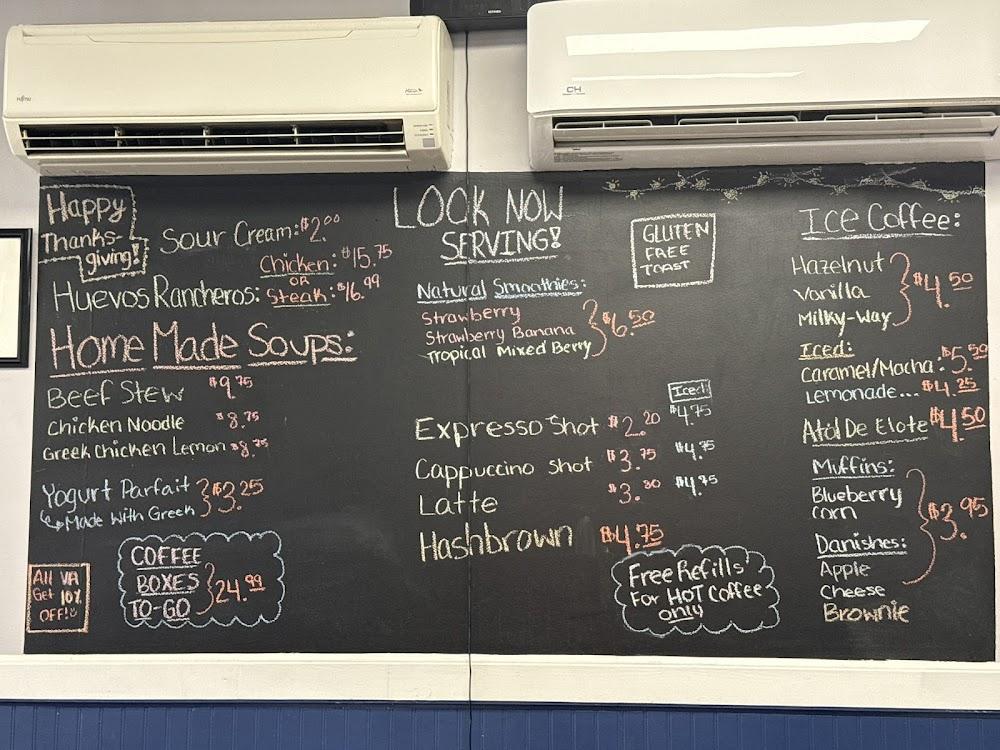 FUJITSU
CH
Happy
Thanks-
giving!
Sour Cream: $2.00
Chicken: $15.75
OR
Huevos Rancheros: Steak: $16.99
Home Made Soups:
Beef Stew $9.75
Chicken Noodle $8.75
Greek Chicken Lemon $8.75
Yogurt Parfait $3.25
Made With Greek
COFFEE
BOXES
TO-GO
24.99
All VA
Get 10%
OFF!
LOOK NOW
SERVING!
GLUTEN
FREE
TOAST
Natural Smoothies:
Strawberry
Strawberry Banana
Tropical Mixed Berry
$6.50
Iced:
Expresso Shot $2.20 $4.75
Cappuccino Shot $3.75 $4.75
Latte $3.80 $4.75
Hashbrown $4.75
Free Refills
For HOT Coffee
only
Ice Coffee:
Hazelnut
Vanilla
Milky-Way
$4.50
Iced:
Caramel/Mocha: $5.50
Lemonade... $4.25
Atol De Elote $4.50
Muffins:
Blueberry
corn
$3.95
Danishes:
Apple
Cheese
Brownie